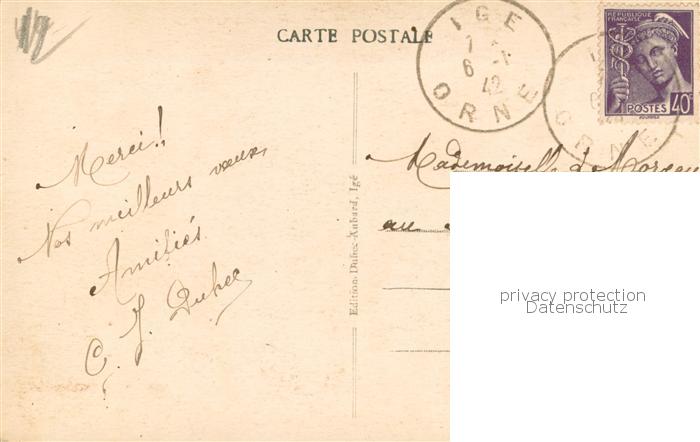 CARTE POSTALE
IGE
7
6 -1
42
ORNE
RÉPUBLIQUE
FRANÇAISE
POSTES 40c
ORNE
Merci!
Nos meilleurs vœux,
Amitiés
C. J. Duhec
Mademoiselle
au
Edition Duhec-Aubard, Igé
privacy protection
Datenschutz